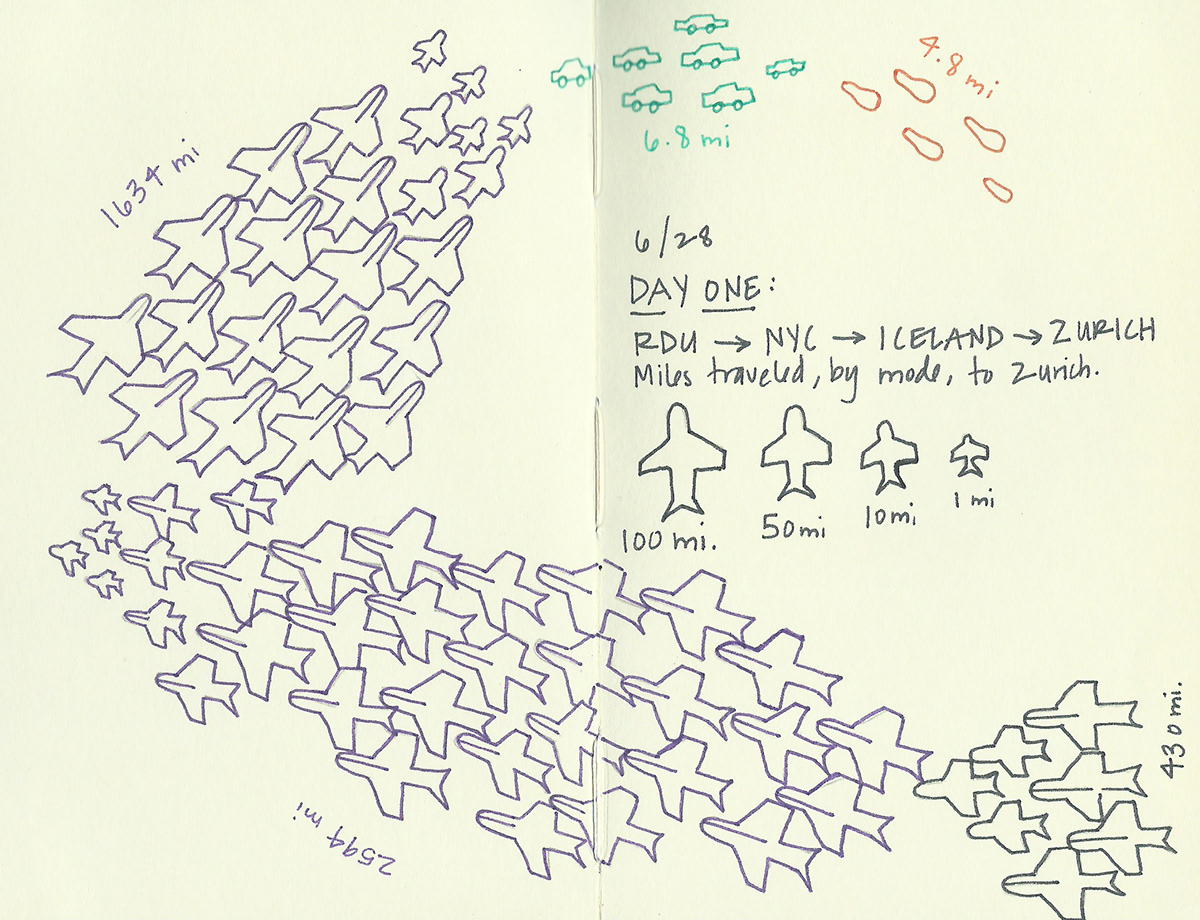 4.8 mi
6.8 mi
1634 mi
6/28
DAY ONE:
RDU → NYC → ICELAND → ZURICH
Miles traveled, by mode, to Zurich.
100 mi.
50 mi
10 mi
1 mi
430 mi.
2594 mi